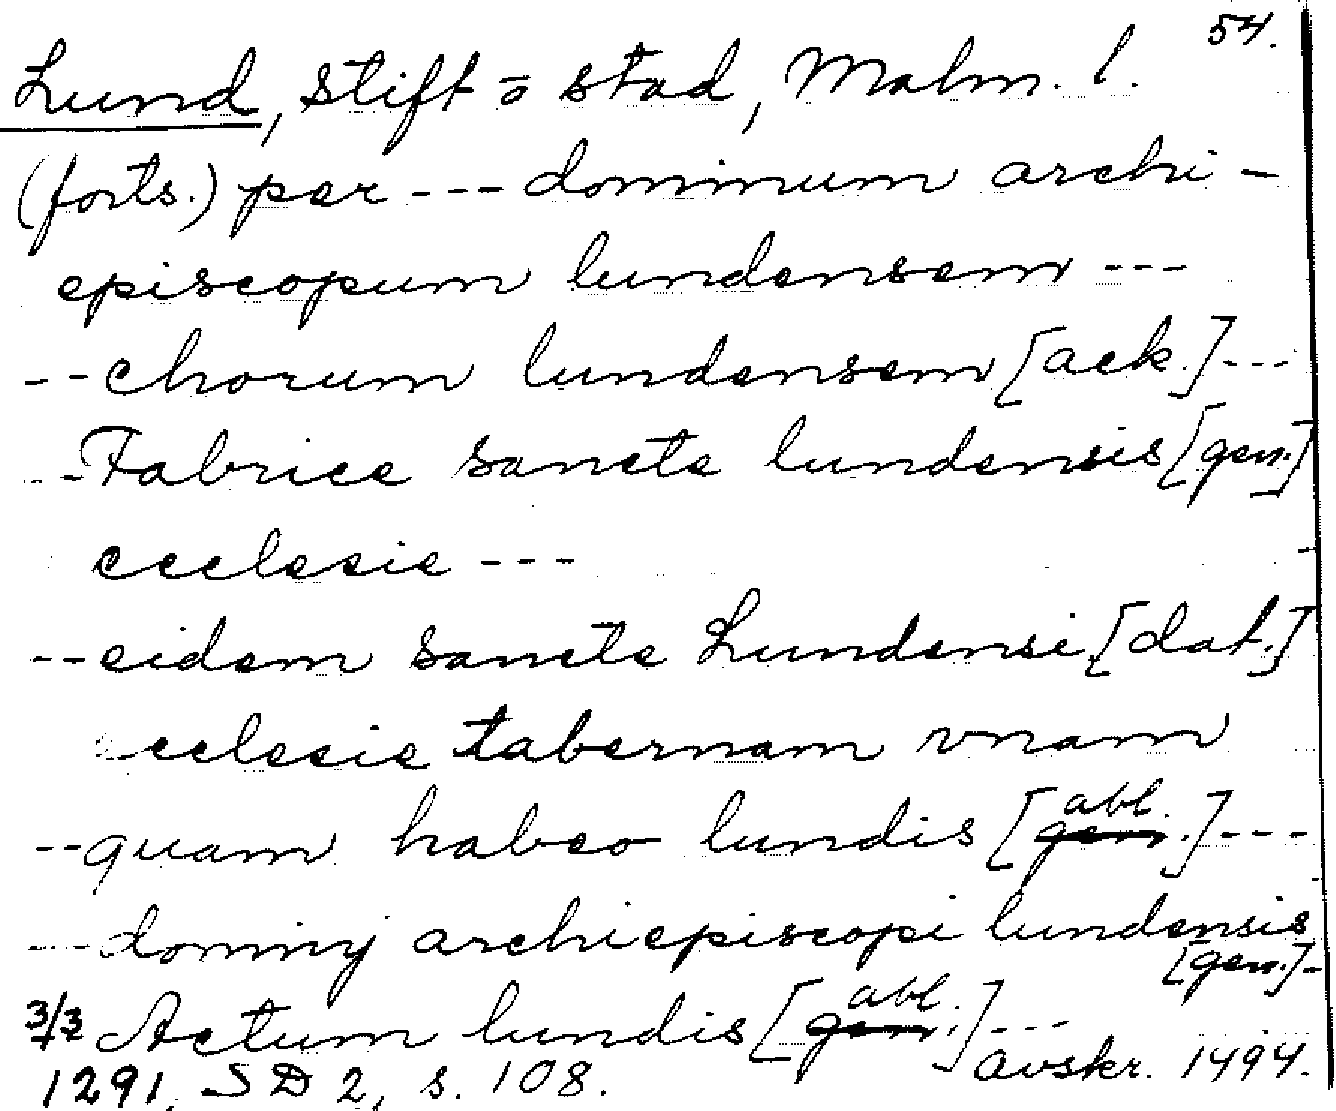 54.
Lund, Stift o stad, Malm. l.
(forts.) per --- dominum archi-
episcopum lundensem ---
-- chorum lundensem [ack.] ---
-- Fabrice sancte lundensis [gen.]
ecclesie ---
-- eidem sancte Lundensi [dat.]
ecclesie tabernam vnam
-- quam habeo lundis [abl.] ---
--- dominj archiepiscopi lundensis
[gen.] -
3/3 Actum lundis [abl.] ---
1291, SD 2, s. 108. avskr. 1494.